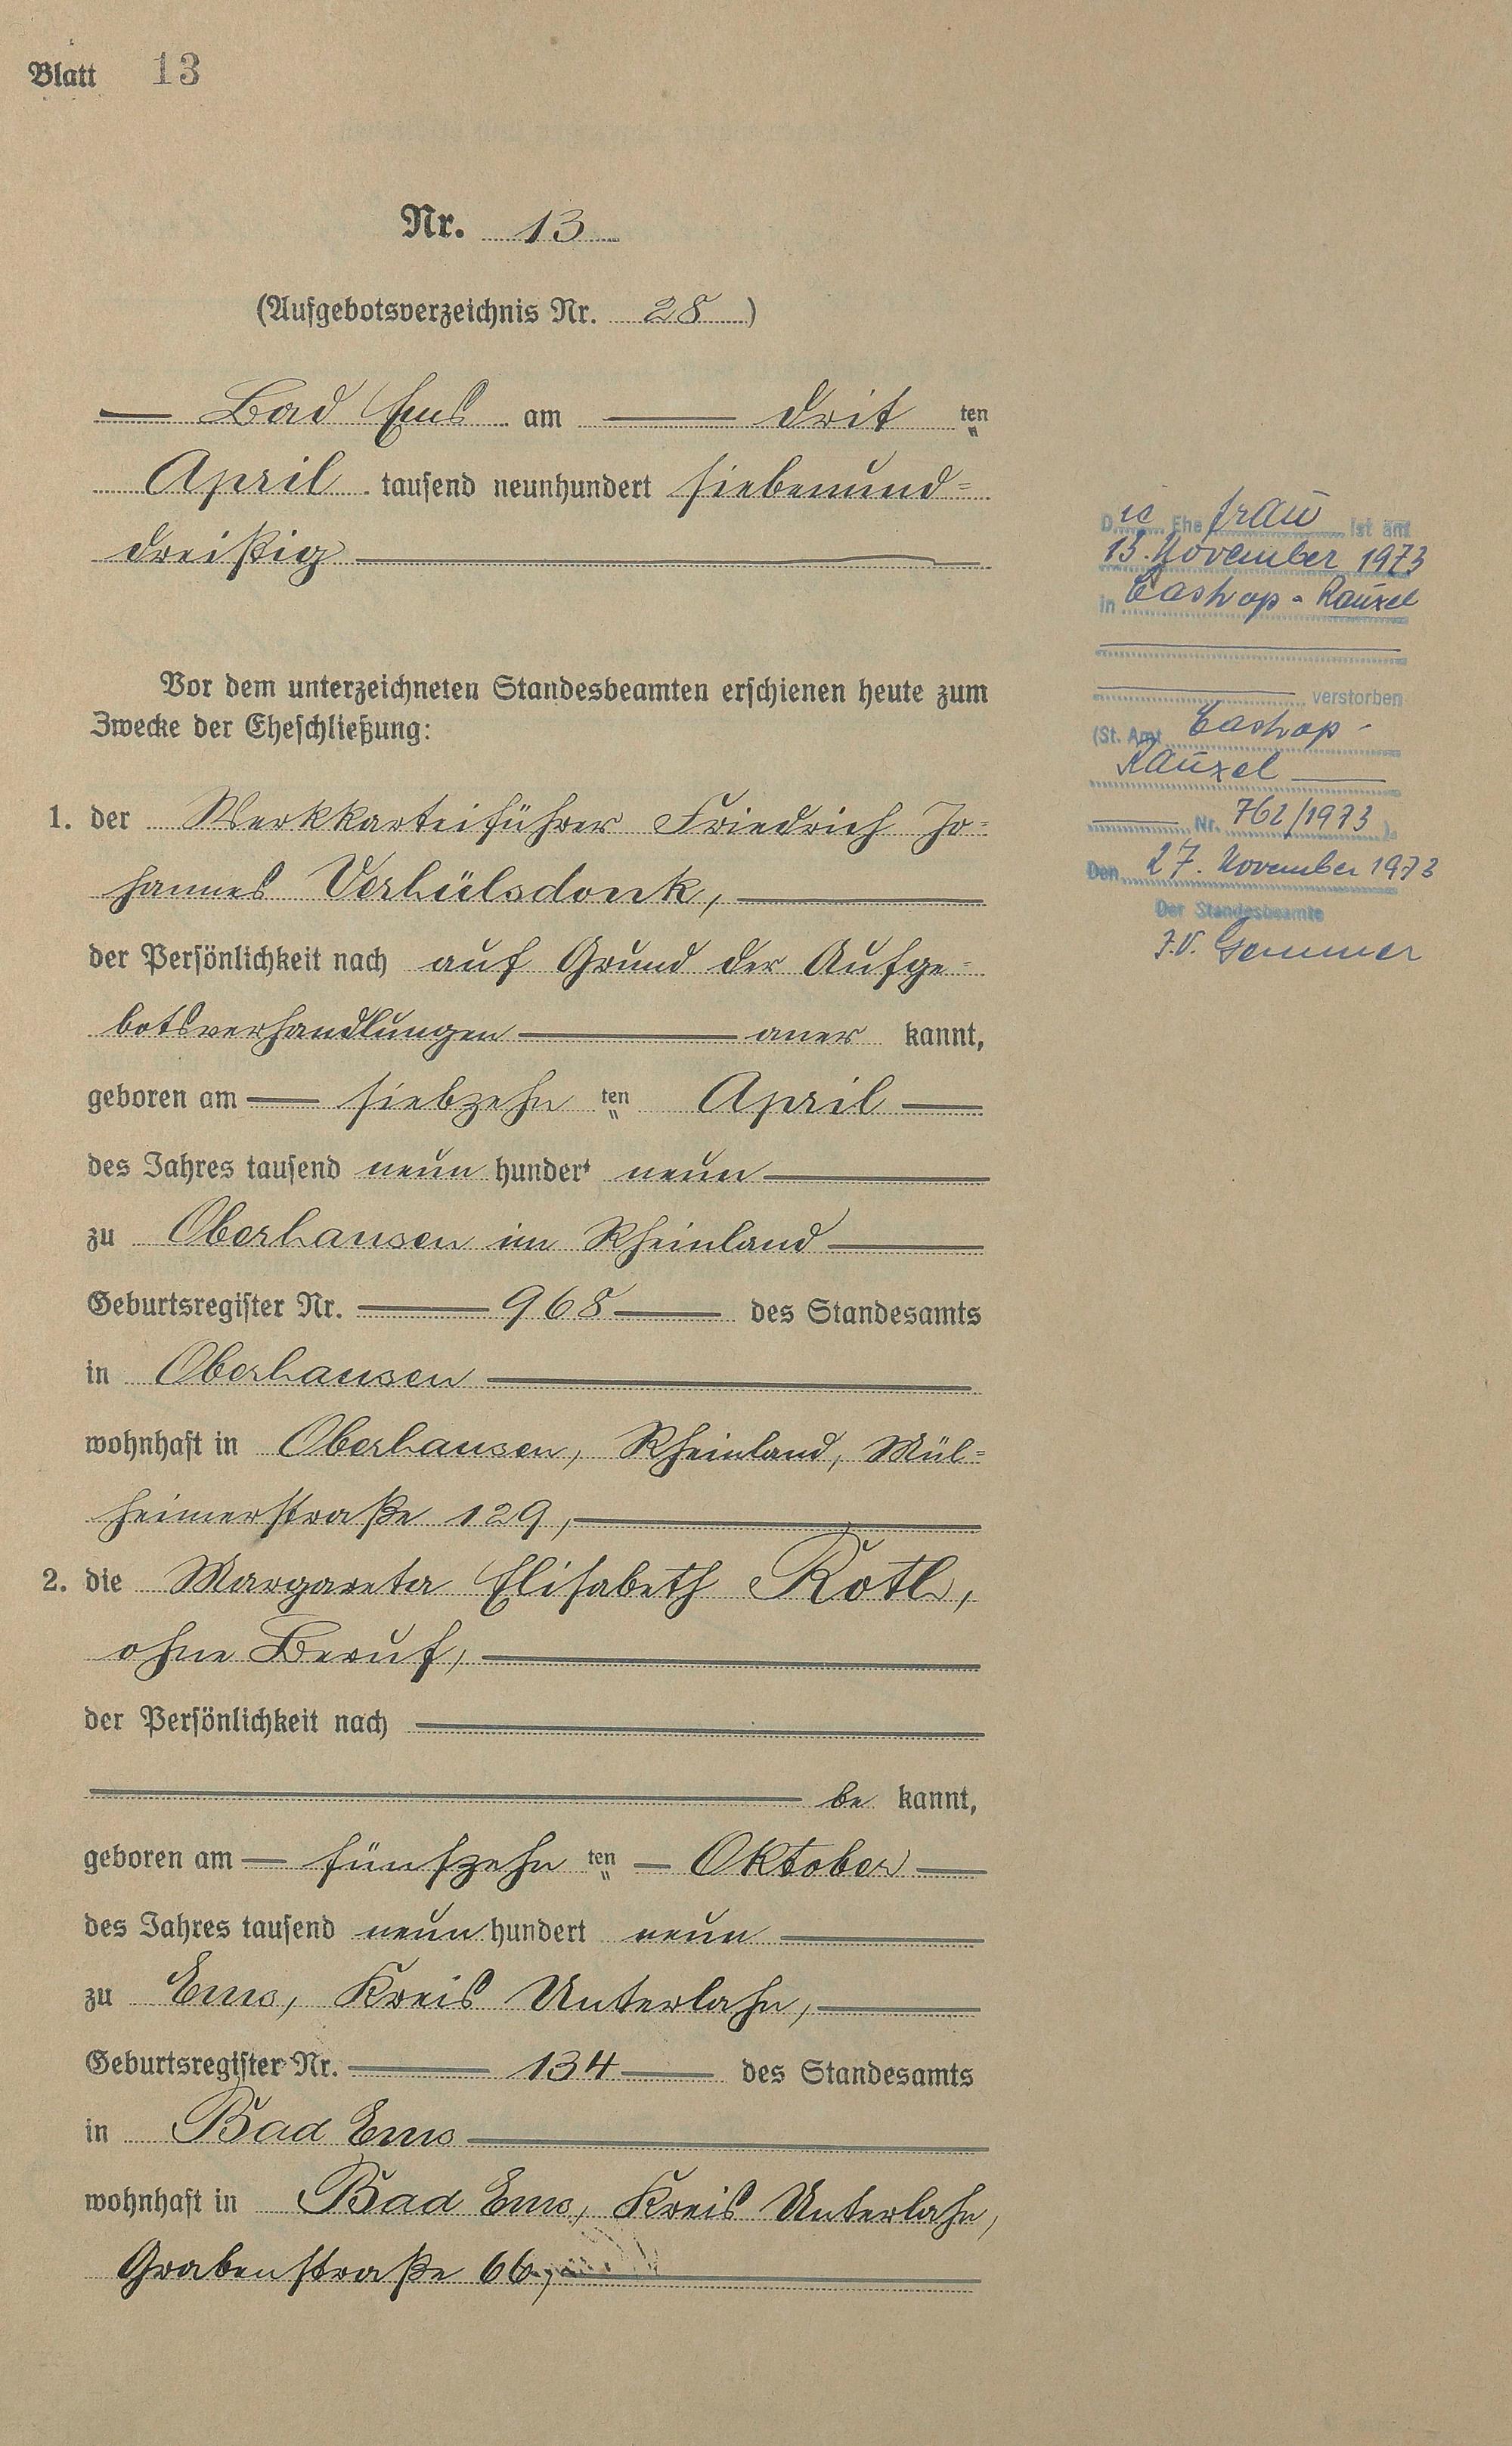 Blatt 13
Nr. 13
(Aufgebotsverzeichnis Nr. 28)
Bad Ems am drit ten
April tausend neunhundert siebenund=
dreißig
Vor dem unterzeichneten Standesbeamten erschienen heute zum
Zwecke der Eheschließung:
1. der Werkkarteiführer Friedrich Jo=
hannes Verhülsdonk,
der Persönlichkeit nach auf Grund der Aufge=
botsverhandlungen aner kannt,
geboren am siebzehn ten April
des Jahres tausend neun hundert neun
zu Oberhausen im Rheinland
Geburtsregister Nr. 968 des Standesamts
in Oberhausen
wohnhaft in Oberhausen, Rheinland, Mül=
heimerstraße 129,
2. die Margareta Elisabeth Roth,
ohne Beruf,
der Persönlichkeit nach
be kannt,
geboren am fünfzehn ten Oktober
des Jahres tausend neun hundert neun
zu Ems, Kreis Unterlahn,
Geburtsregister Nr. 134 des Standesamts
in Bad Ems
wohnhaft in Bad Ems, Kreis Unterlahn,
Grabenstraße 66,
Die Ehe frau ist am
13. November 1973
in Castrop-Rauxel
verstorben
(St. Amt Castrop-
Rauxel
Nr. 762/1973)
Den 27. November 1973
Der Standesbeamte
I.V.